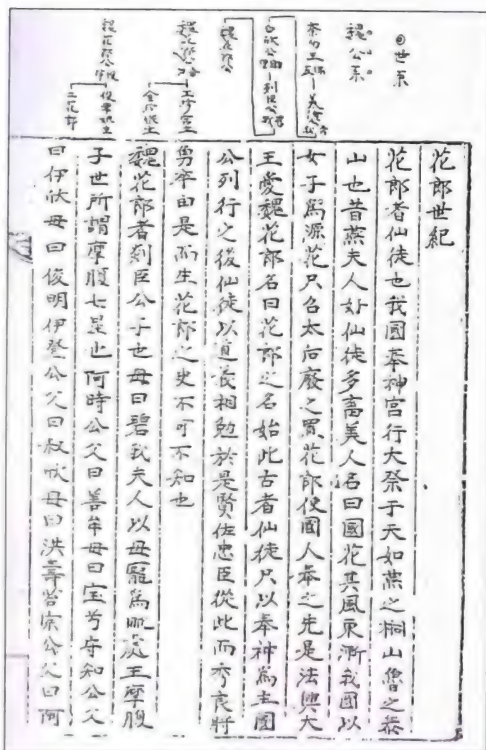 ◎世系
魏公系
花郎世紀
花郎者仙徒也我國奉神宮行大祭于天如燕之桐山魯之泰
山也昔燕夫人好仙徒多畜美人名曰國花其風東漸我國以
女子爲源花只召太后廢之置花郎使國人奉之先是法興大
王愛魏花郎名曰花郎之名始此古者仙徒只以奉神爲主國
公列行之後仙徒以道義相勉於是賢佐忠臣從此而秀良將
勇卒由是而生花郎之史不可不知也
魏花郎者剡臣公子也母曰碧我夫人以母寵爲毗處王摩腹
子世所謂摩腹七星也阿時公父曰善牟母曰宝兮守知公父
曰伊欣母曰俊明伊登公父曰叔欣母曰洪壽苔宗公父曰阿